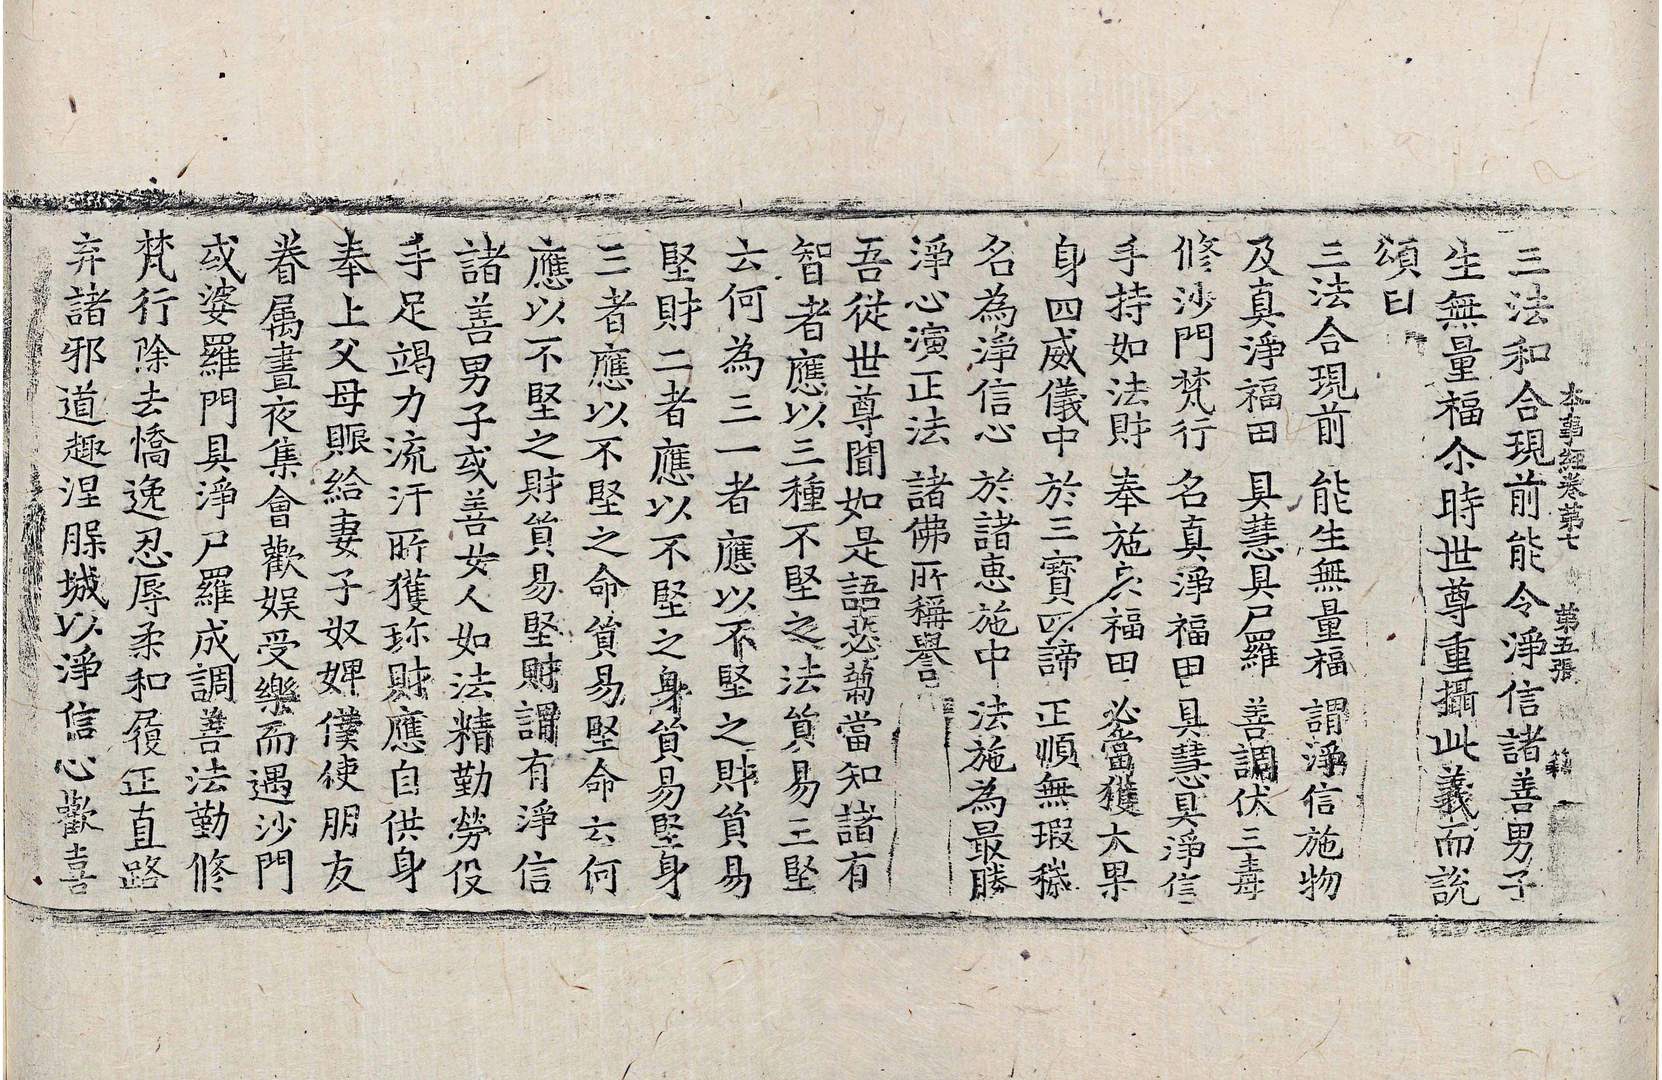 本事經卷第七　第五張　籍
三法和合現前能令淨信諸善男子
生無量福尒時世尊重攝此義而說
頌曰
三法合現前　能生無量福　謂淨信施物
及真淨福田　具慧具尸羅　善調伏三毒
修沙門梵行　名真淨福田　具慧具淨信
手持如法財　奉施良福田　必當獲大果
身四威儀中　於三寶四諦　正順無瑕穢
名為淨信心　於諸恵施中　法施為最勝
淨心演正法　諸佛所稱譽
吾從世尊聞如是語苾蒭當知諸有
智者應以三種不堅之法貿易三堅
云何為三一者應以不堅之財貿易
堅財二者應以不堅之身貿易堅身
三者應以不堅之命貿易堅命云何
應以不堅之財貿易堅財謂有淨信
諸善男子或善女人如法精勤勞役
手足竭力流汗所獲珎財應自供身
奉上父母賑給妻子奴婢僕使朋友
眷属晝夜集會歡娛受樂而遇沙門
或婆羅門具淨尸羅成調善法勤修
梵行除去憍逸忍辱柔和履正直路
弃諸邪道趣涅脲城以淨信心歡喜